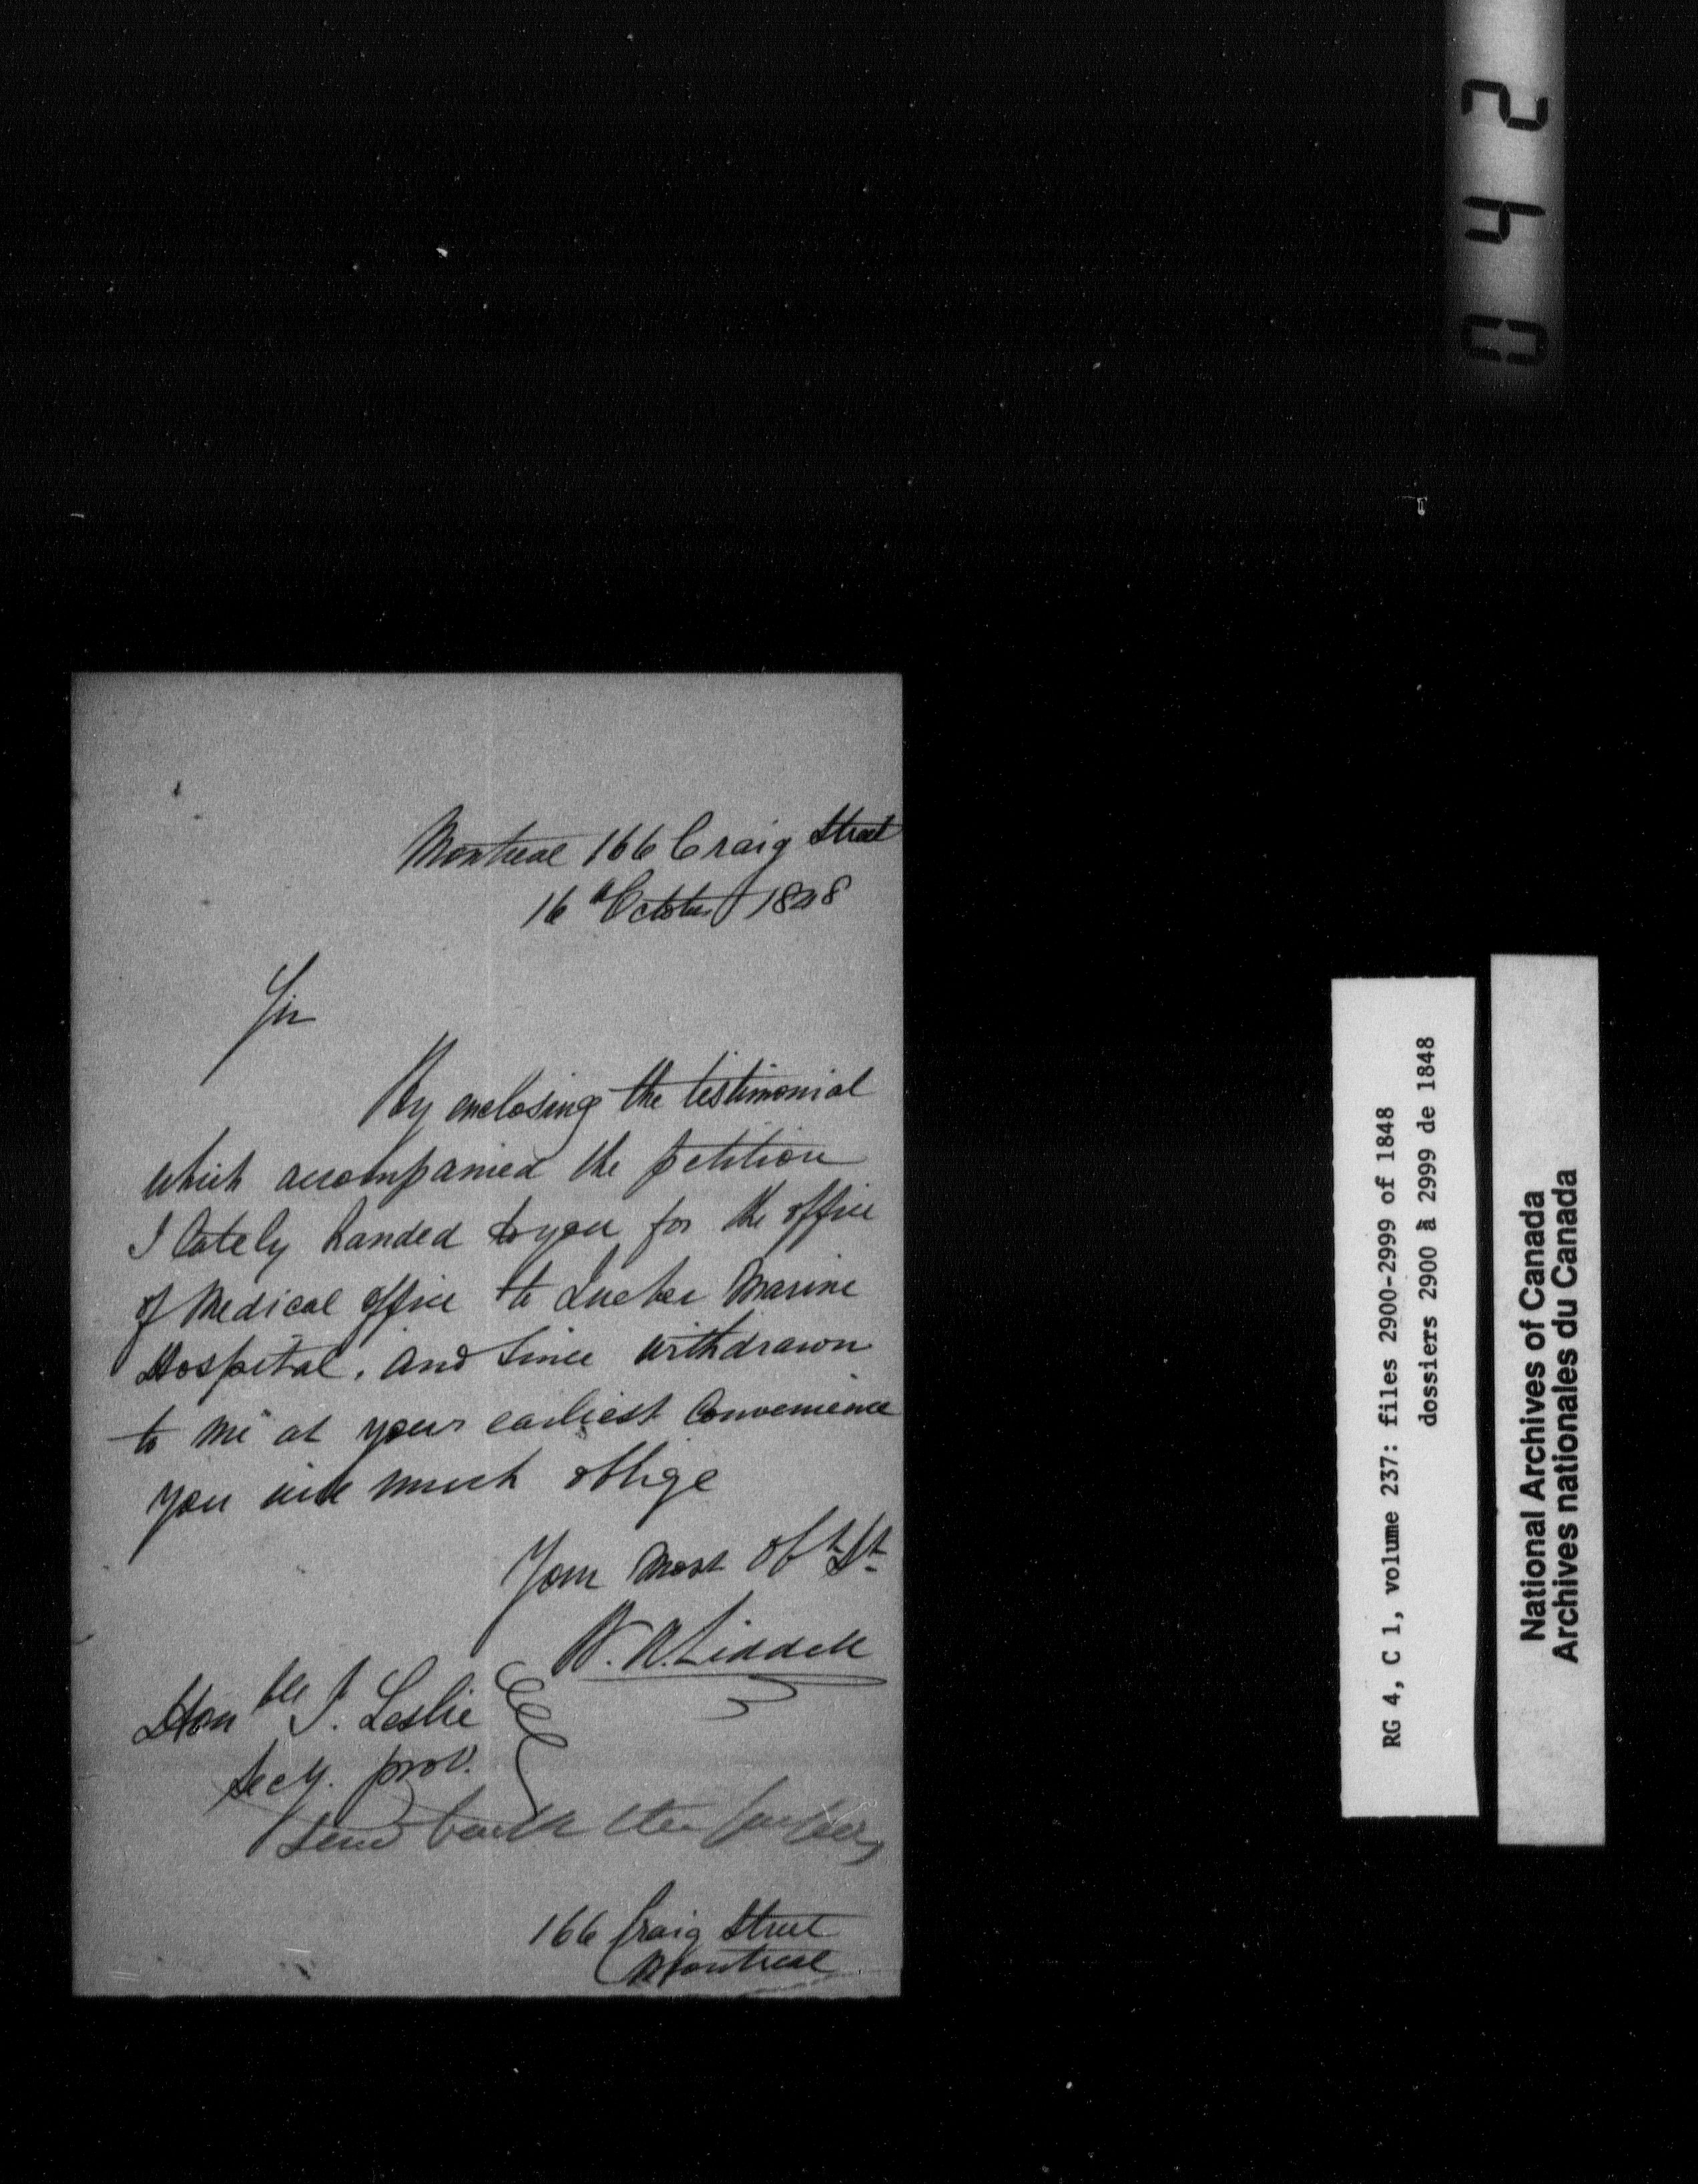 Montreal 166 Craig Street
16th October 1848
Sir
By enclosing the testimonial
which accompanied the petition
I lately handed to you for the office
of Medical office to Quebec Marine
Hospital, and since withdrawn
to me at your earliest Convenience
you will much oblige
Your most Obt St
W. R. Liddell
Honble J. Leslie
Secy. prov.
Send back the
166 Craig Street
Montreal
042
RG 4, C 1, volume 237: files 2900-2999 of 1848
dossiers 2900 à 2999 de 1848
National Archives of Canada
Archives nationales du Canada